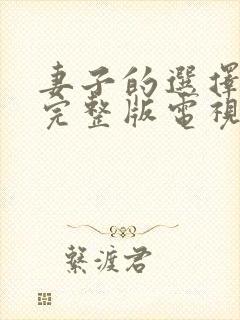 妻子的選擇
完整版電視
繫渡君